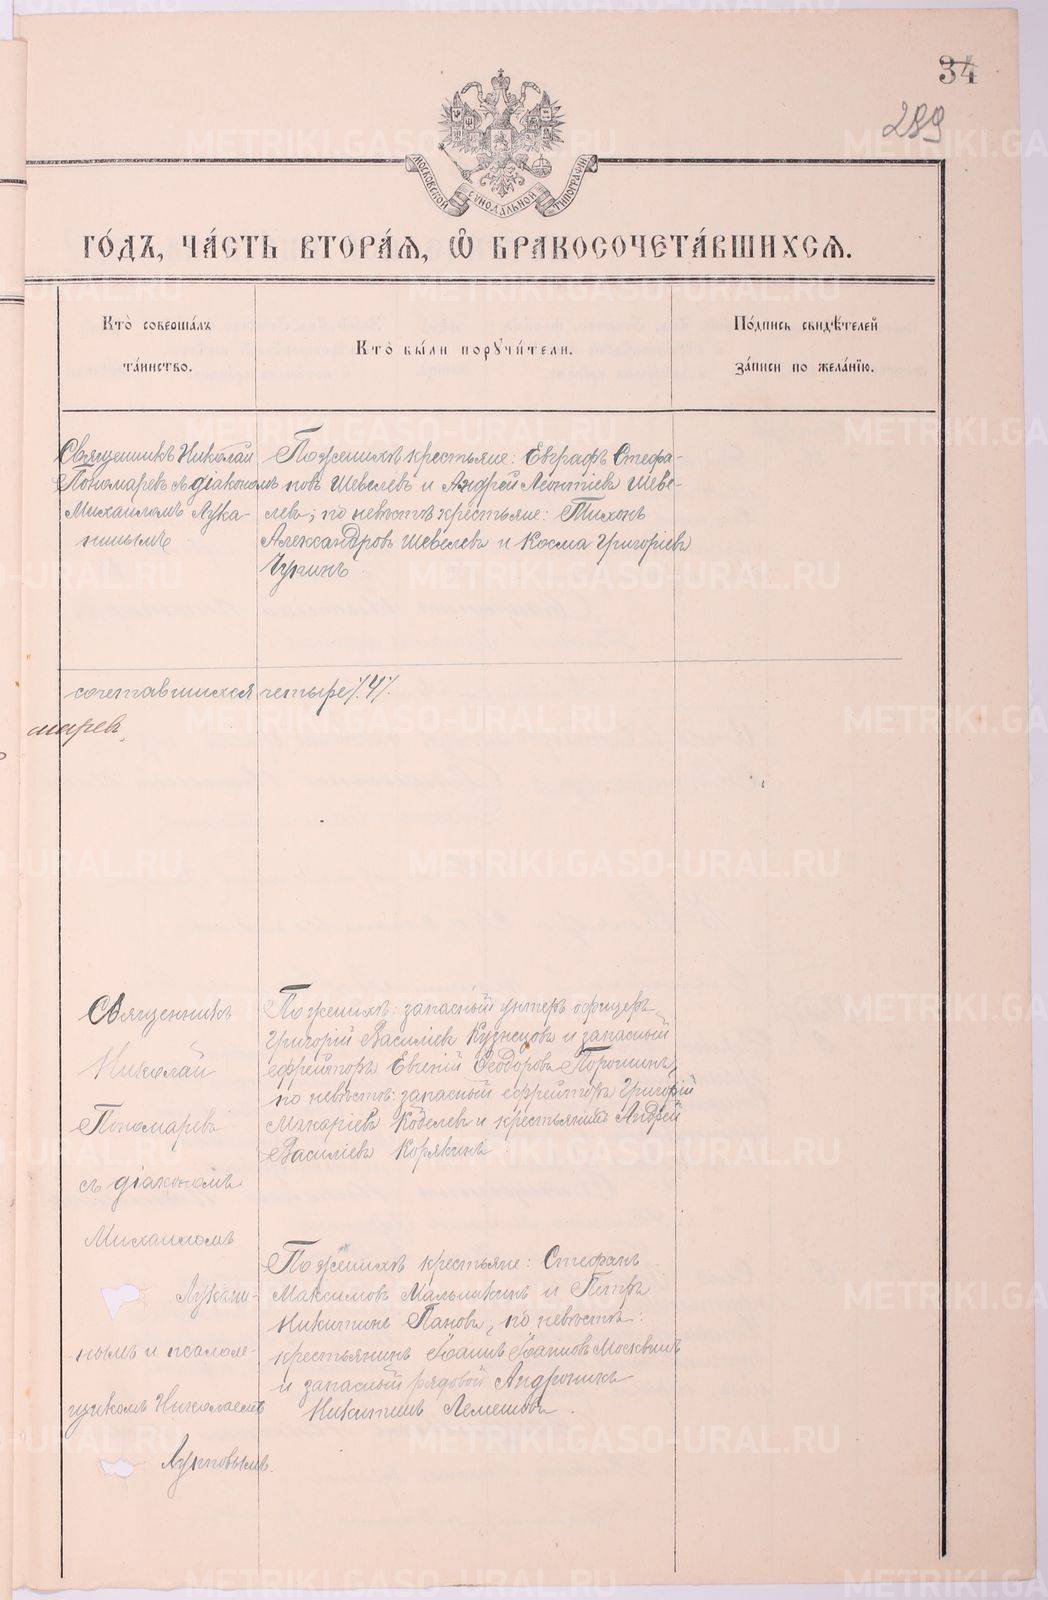 34
289
МОСКОВСКОЙ СѴНОДАЛЬНОЙ ТИПОГРАФІИ
ГОДЪ, ЧАСТЬ ВТОРАѦ, Ѡ БРАКОСОЧЕТАВШИХСѦ.
Кто совершалъ
таинство.
Кто были поручители.
Подпись свидѣтелей
записи по желанію.
Священникъ Николай
Пономаревъ съ діакономъ
Михаиломъ Лука-
нинымъ
По женихѣ крестьяне: Евграфъ Стефа-
новъ Шевелевъ и Андрей Леонтіевъ Шеве-
левъ; по невѣстѣ крестьяне: Тихонъ
Александровъ Шевелевъ и Косма Григоріевъ
Чужинъ
сочетавшихся четыре /.4/.
маревъ
Священникъ
Николай
Пономаревъ
съ діакономъ
Михаиломъ
Лукани-
нымъ и псалом-
щикомъ Николаемъ
По женихѣ: запасный унтеръ офицеръ
Григорій Василіевъ Кузнецовъ и запасный
ефрейторъ Евгеній Ѳеодоровъ Порошинъ,
по невѣстѣ: запасный ефрейторъ Григорій
Макаріевъ Кобелевъ и крестьянинъ Андрей
Василіевъ Корякинъ.
По женихѣ крестьяне: Стефанъ
Максимовъ Мальшкинъ и Петръ
Никитинъ Пановъ, по невѣстѣ:
крестьянинъ Іоаннъ Іоанновъ Москвинъ
и запасный рядовой Андроникъ
Никитинъ Лемешовъ.
METRIKI.GASO-URAL.RU